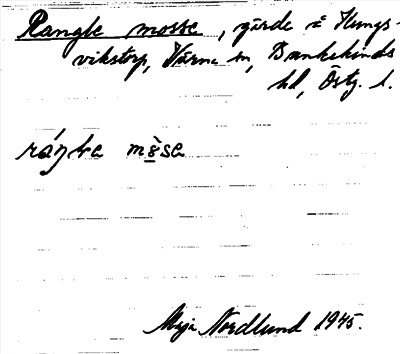 Rangle mosse, gärde å Kungs-
vikstorp, Värna sn, Bankekinds
hd, Östg. l.
Maja Nordlund 1945.